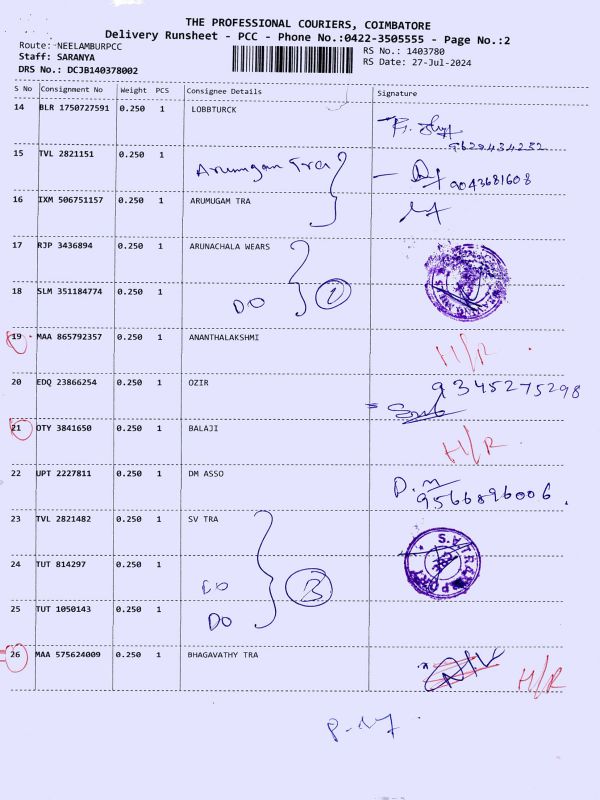 THE PROFESSIONAL COURIERS, COIMBATORE
Delivery Runsheet - PCC - Phone No.:0422-3505555 - Page No.:2
Route: NEELAMBURPCC
RS No.: 1403780
Staff: SARANYA
RS Date: 27-Jul-2024
DRS No.: DCJB140378002
S No Consignment No Weight PCS Consignee Details Signature
14 BLR 1750727591 0.250 1 LOBBTURCK
9629434252
15 TVL 2821151 0.250 1 Arumugam Tra
9043681608
16 IXM 506751157 0.250 1 ARUMUGAM TRA
17 RJP 3436894 0.250 1 ARUNACHALA WEARS
18 SLM 351184774 0.250 1 DO
19 MAA 865792357 0.250 1 ANANTHALAKSHMI H/R
20 EDQ 23866254 0.250 1 OZIR 9345275298
21 OTY 3841650 0.250 1 BALAJI H/R
22 UPT 2227811 0.250 1 DM ASSO D.M
9566896006.
23 TVL 2821482 0.250 1 SV TRA
24 TUT 814297 0.250 1 DO
25 TUT 1050143 0.250 1 DO
26 MAA 575624009 0.250 1 BHAGAVATHY TRA H/R